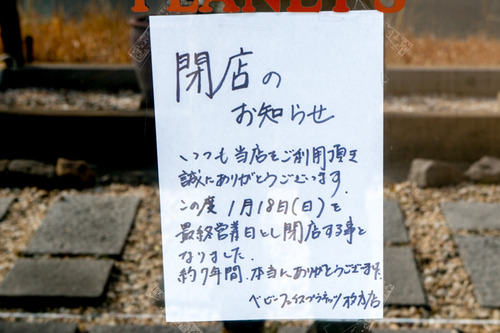 PLANETS
閉店の
お知らせ
いつも当店をご利用頂き
誠にありがとうございます.
この度 1月18日(日)を
最終営業日とし閉店する事と
なりました.
約7年間.本当にありがとうございます.
ベビーフェイスプラネッツ